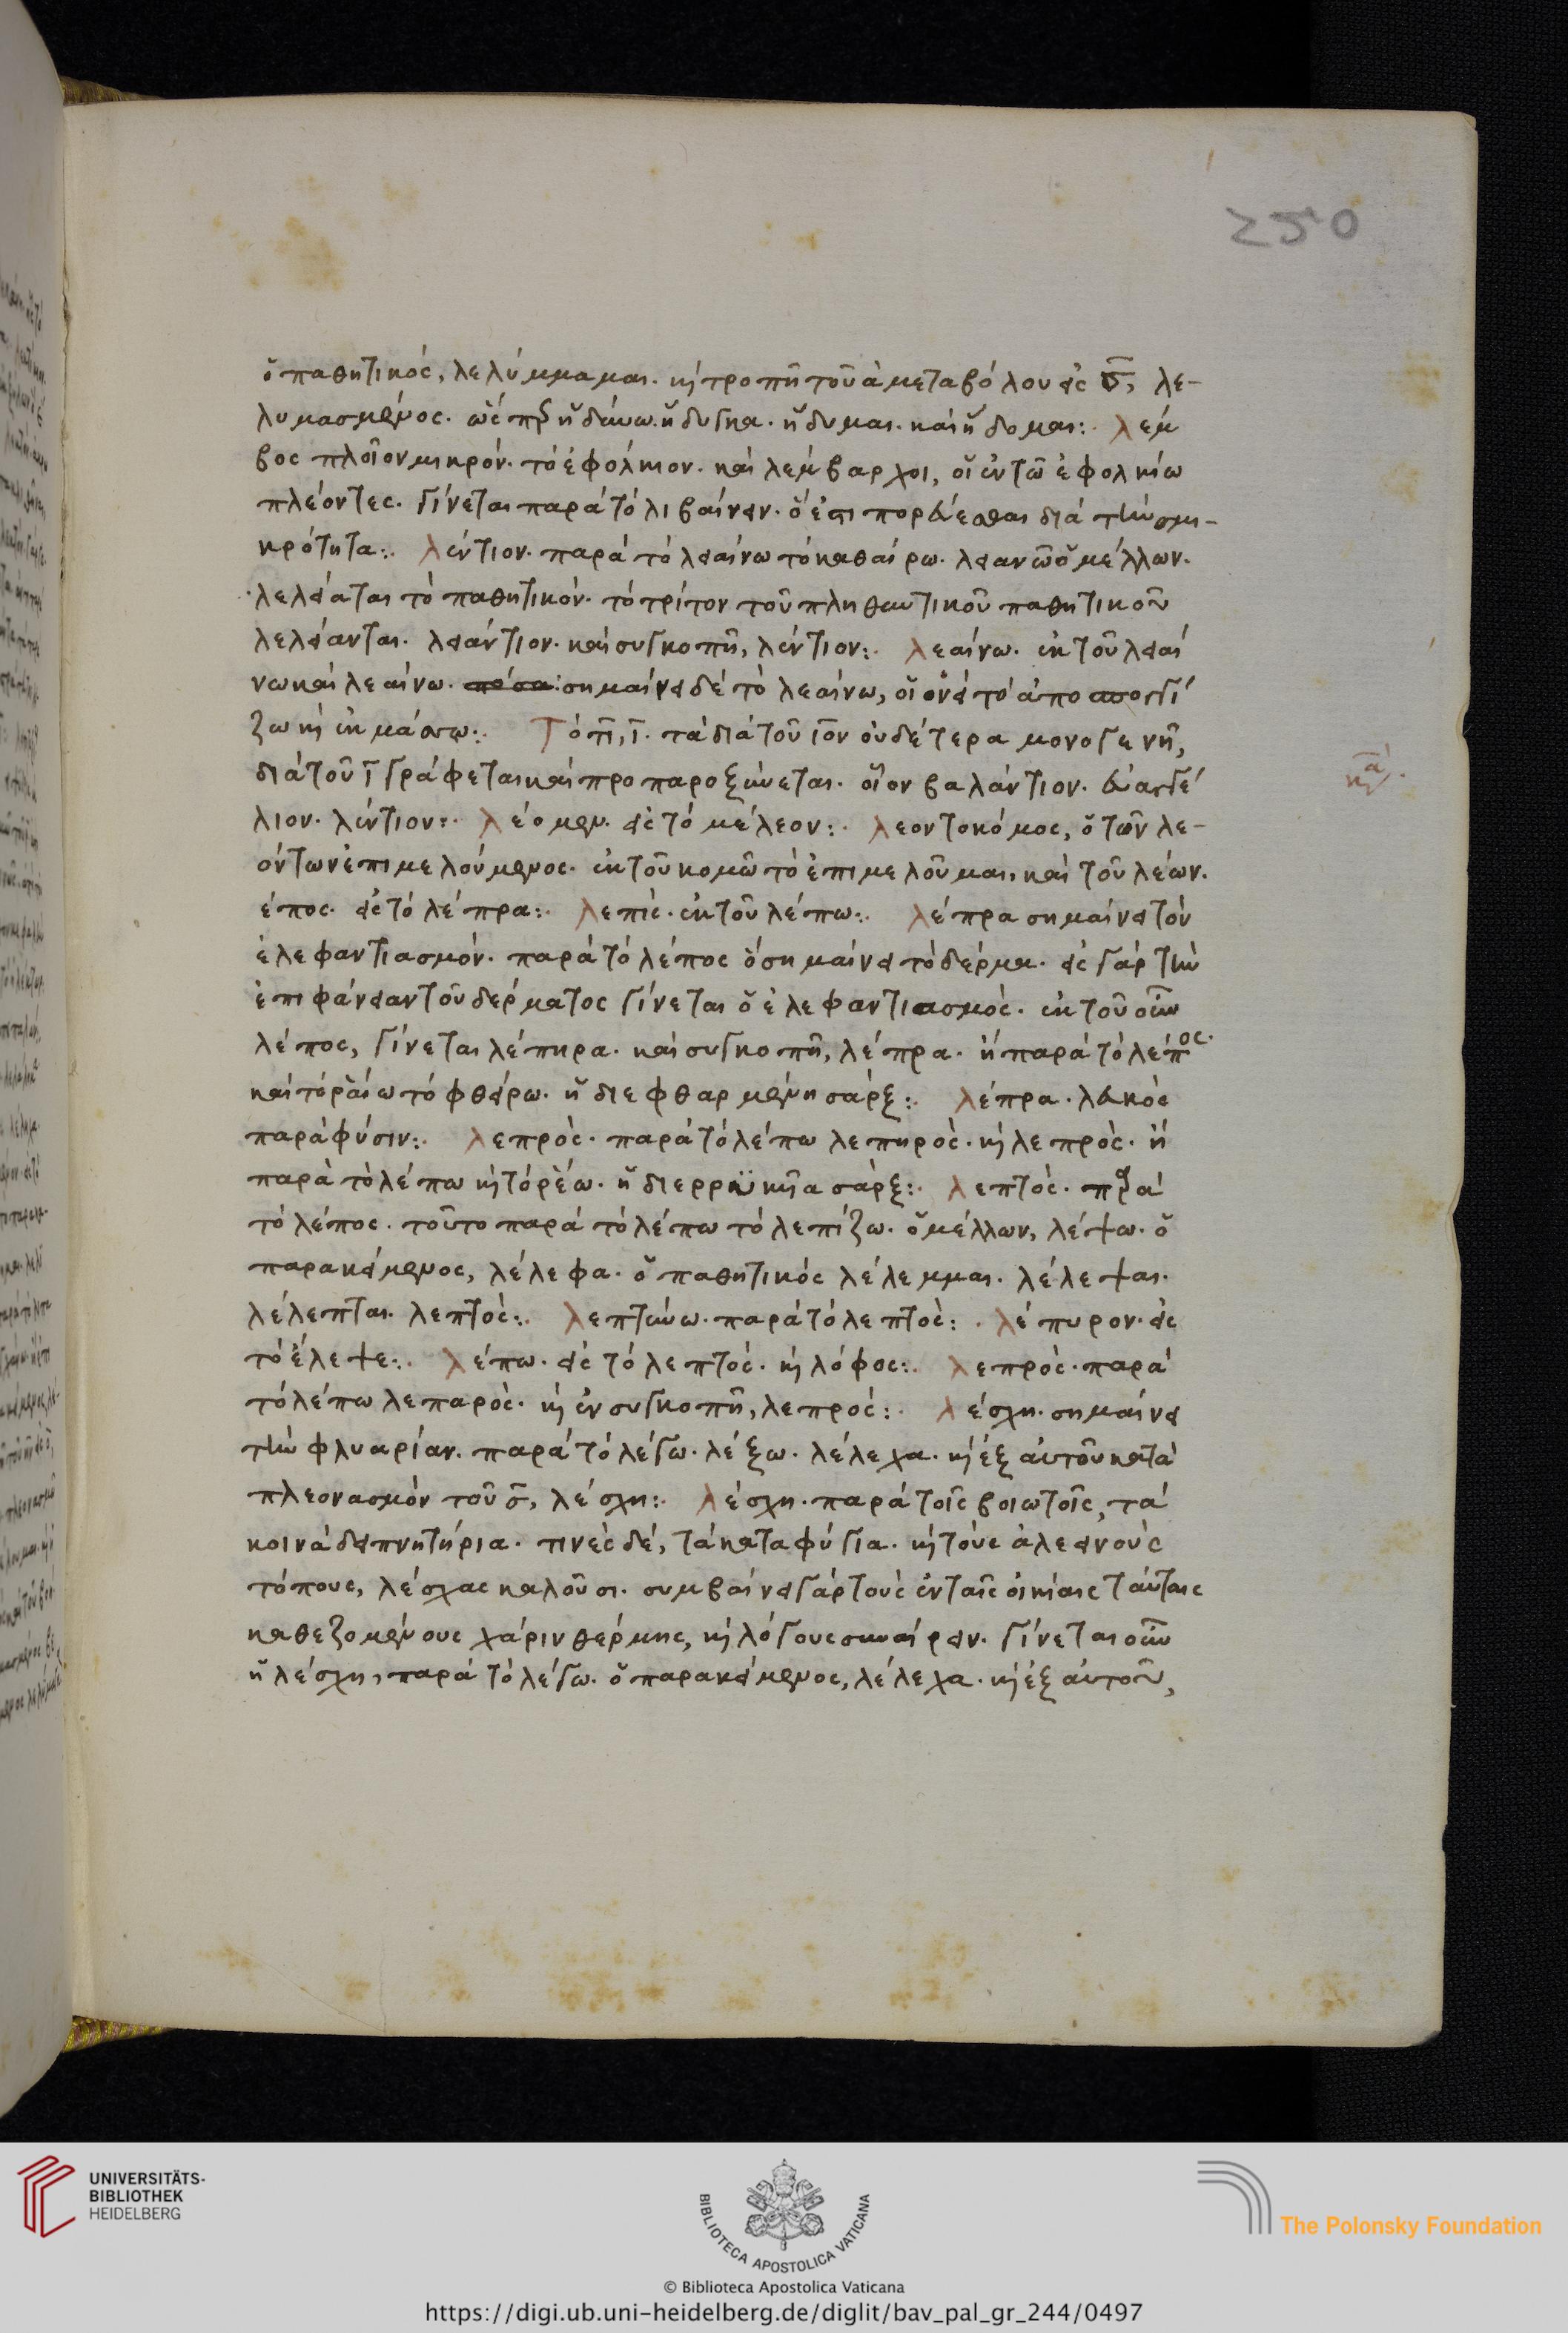 250
ὁ παθητικός, λελύμμαμαι. κ τροπῆ τοῦ ἀμεταβόλου εἰς σ̅, λε-
λυμασμένος. ἡδύνω. ἥδυγκα. ἥδυμαι. καὶ ἥδομαι:. λέμ
βος πλοῖον μικρόν. τὸ ἐφόλκιον. καὶ λέμβαρχοι, οἱ ἐν τῶ ἐφολκίω
πλέοντες. γίνεται παρὰ τὸ λιβαίνειν. ὅ ἐστι πορεύεσθαι διὰ τὴν σμι-
κρότητα:. λέντιον. παρὰ τὸ λειαίνω τὸ καθαίρω. λειανῶ ὁ μέλλων.
λελείαται τὸ παθητικόν. τὸ τρίτον τοῦ πληθυντικοῦ παθητικοῦ
λελείανται. λειάντιον. καὶ συγκοπῆ, λέντιον:. λεαίνω. ἐκ τοῦ λειαί
νω καὶ λεαίνω. σημαίνει δὲ τὸ λεαίνω, οἱονεὶ τὸ ἀποσπογγί
ζω κ ἐκμάσσω:. Τὸ τι, ι̅. τὰ διὰ τοῦ ι̅ον οὐδέτερα μονογενῆ,
διὰ τοῦ ι̅ γράφεται καὶ προπαροξύνεται. οἷον βαλάντιον. εὐαγγέ
λιον. λέντιον:. λέομεν. εἰς τὸ μέλεον:. λεοντοκόμος, ὁ τῶν λε-
όντων ἐπιμελούμενος. ἐκ τοῦ κομῶ τὸ ἐπιμελοῦμαι, καὶ τοῦ λέων.
έπος. εἰς τὸ λέπρα:. λεπὶς. ἐκ τοῦ λέπω:. λέπρα σημαίνει τὸν
ἐλεφαντιασμόν. παρὰ τὸ λέπος ὃ σημαίνει τὸ δέρμα. εἰς γὰρ τὴν
ἐπιφάνειαν τοῦ δέρματος γίνεται ὁ ἐλεφαντιασμὸς. ἐκ τοῦ οὖν
λέπος, γίνεται λέπηρα. καὶ συγκοπῆ, λέπρα. ἢ παρὰ τὸ λέπος.
καὶ τὸ ῥαίω τὸ φθείρω. ἡ διεφθαρμένη σάρξ:. λέπρα. λευκὸς
παρὰ φύσιν:. λεπρὸς. παρὰ τὸ λέπω λεπηρὸς. κ λεπρὸς. ἢ
παρὰ τὸ λέπω κ τὸ ῥέω. ἡ διερρϋηκῖα σὰρξ:. λεπτὸς. παρὰ
τὸ λέπος. τοῦτο παρὰ τὸ λέπω τὸ λεπίζω. ὁ μέλλων, λέψω. ὁ
παρακείμενος, λέλεφα. ὁ παθητικός λέλεμμαι. λέλεψαι.
λέλεπται. λεπτὸς:. λεπτύνω. παρὰ τὸ λεπτὸς:. λέπυρον. εἰς
τὸ ἔλεψε:. λέπω. εἰς τὸ λεπτὸς. κ λόφος:. λεπρὸς. παρὰ
τὸ λέπω λεπαρὸς. κ ἐν συγκοπῆ, λεπρός:. λέσχη. σημαίνει
τὴν φλυαρίαν. παρὰ τὸ λέγω. λέξω. λέλεχα. κ ἐξ αὐτοῦ κατὰ
πλεονασμὸν τοῦ σ̅, λέσχη:. λέσχη. παρὰ τοῖς βοιωτοῖς, τὰ
κοινὰ δειπνητήρια. τινὲς δέ, τὰ καταφύγια. κ τοὺς ἀλεεινοὺς
τόπους, λέσχας καλοῦσι. συμβαίνει γὰρ τοὺς ἐν ταῖς οἰκίαις ταύταις
καθεζομένους χάριν θέρμης, κ λόγους συναίρειν. γίνεται οὖν
ἡ λέσχη, παρὰ τὸ λέγω. ὁ παρακείμενος, λέλεχα. κ ἐξ αὐτοῦ,
UNIVERSITÄTS-
BIBLIOTHEK
HEIDELBERG
BIBLIOTECA APOSTOLICA VATICANA
The Polonsky Foundation
© Biblioteca Apostolica Vaticana
https://digi.ub.uni-heidelberg.de/diglit/bav_pal_gr_244/0497